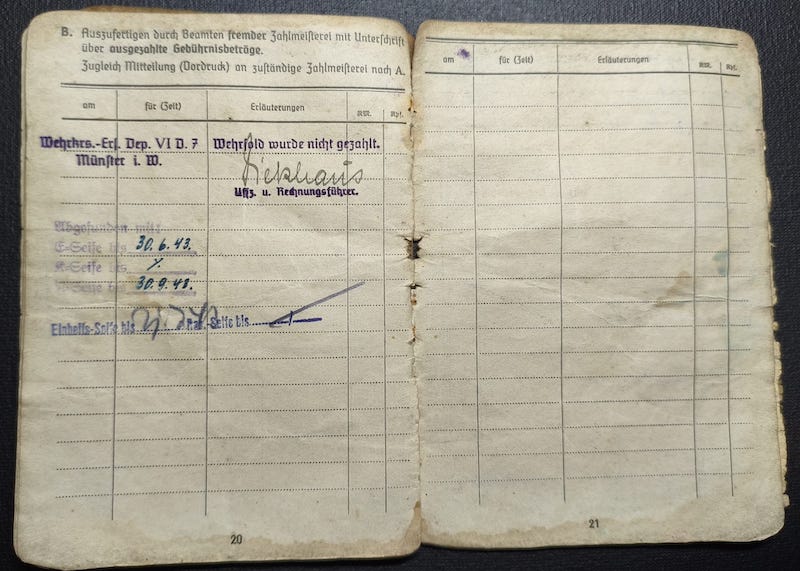 B. Auszufertigen durch Beamten fremder Zahlmeisterei mit Unterschrift
über ausgezahlte Gebührnisbeträge.
Zugleich Mitteilung (Vordruck) an zuständige Zahlmeisterei nach A.
am für (Zeit) Erläuterungen RM. Rpf.
Wehrkrs.-Ers. Dep. VI D. 7 Wehrsold wurde nicht gezahlt.
Münster i. W.
Uffz. u. Rechnungsführer.
Abgefunden mit:
E-Seife bis 30.6.43.
K-Seife bis
30.9.43.
Einheits-Seife bis Ras.-Seife bis
20
am für (Zeit) Erläuterungen RM. Rpf.
21